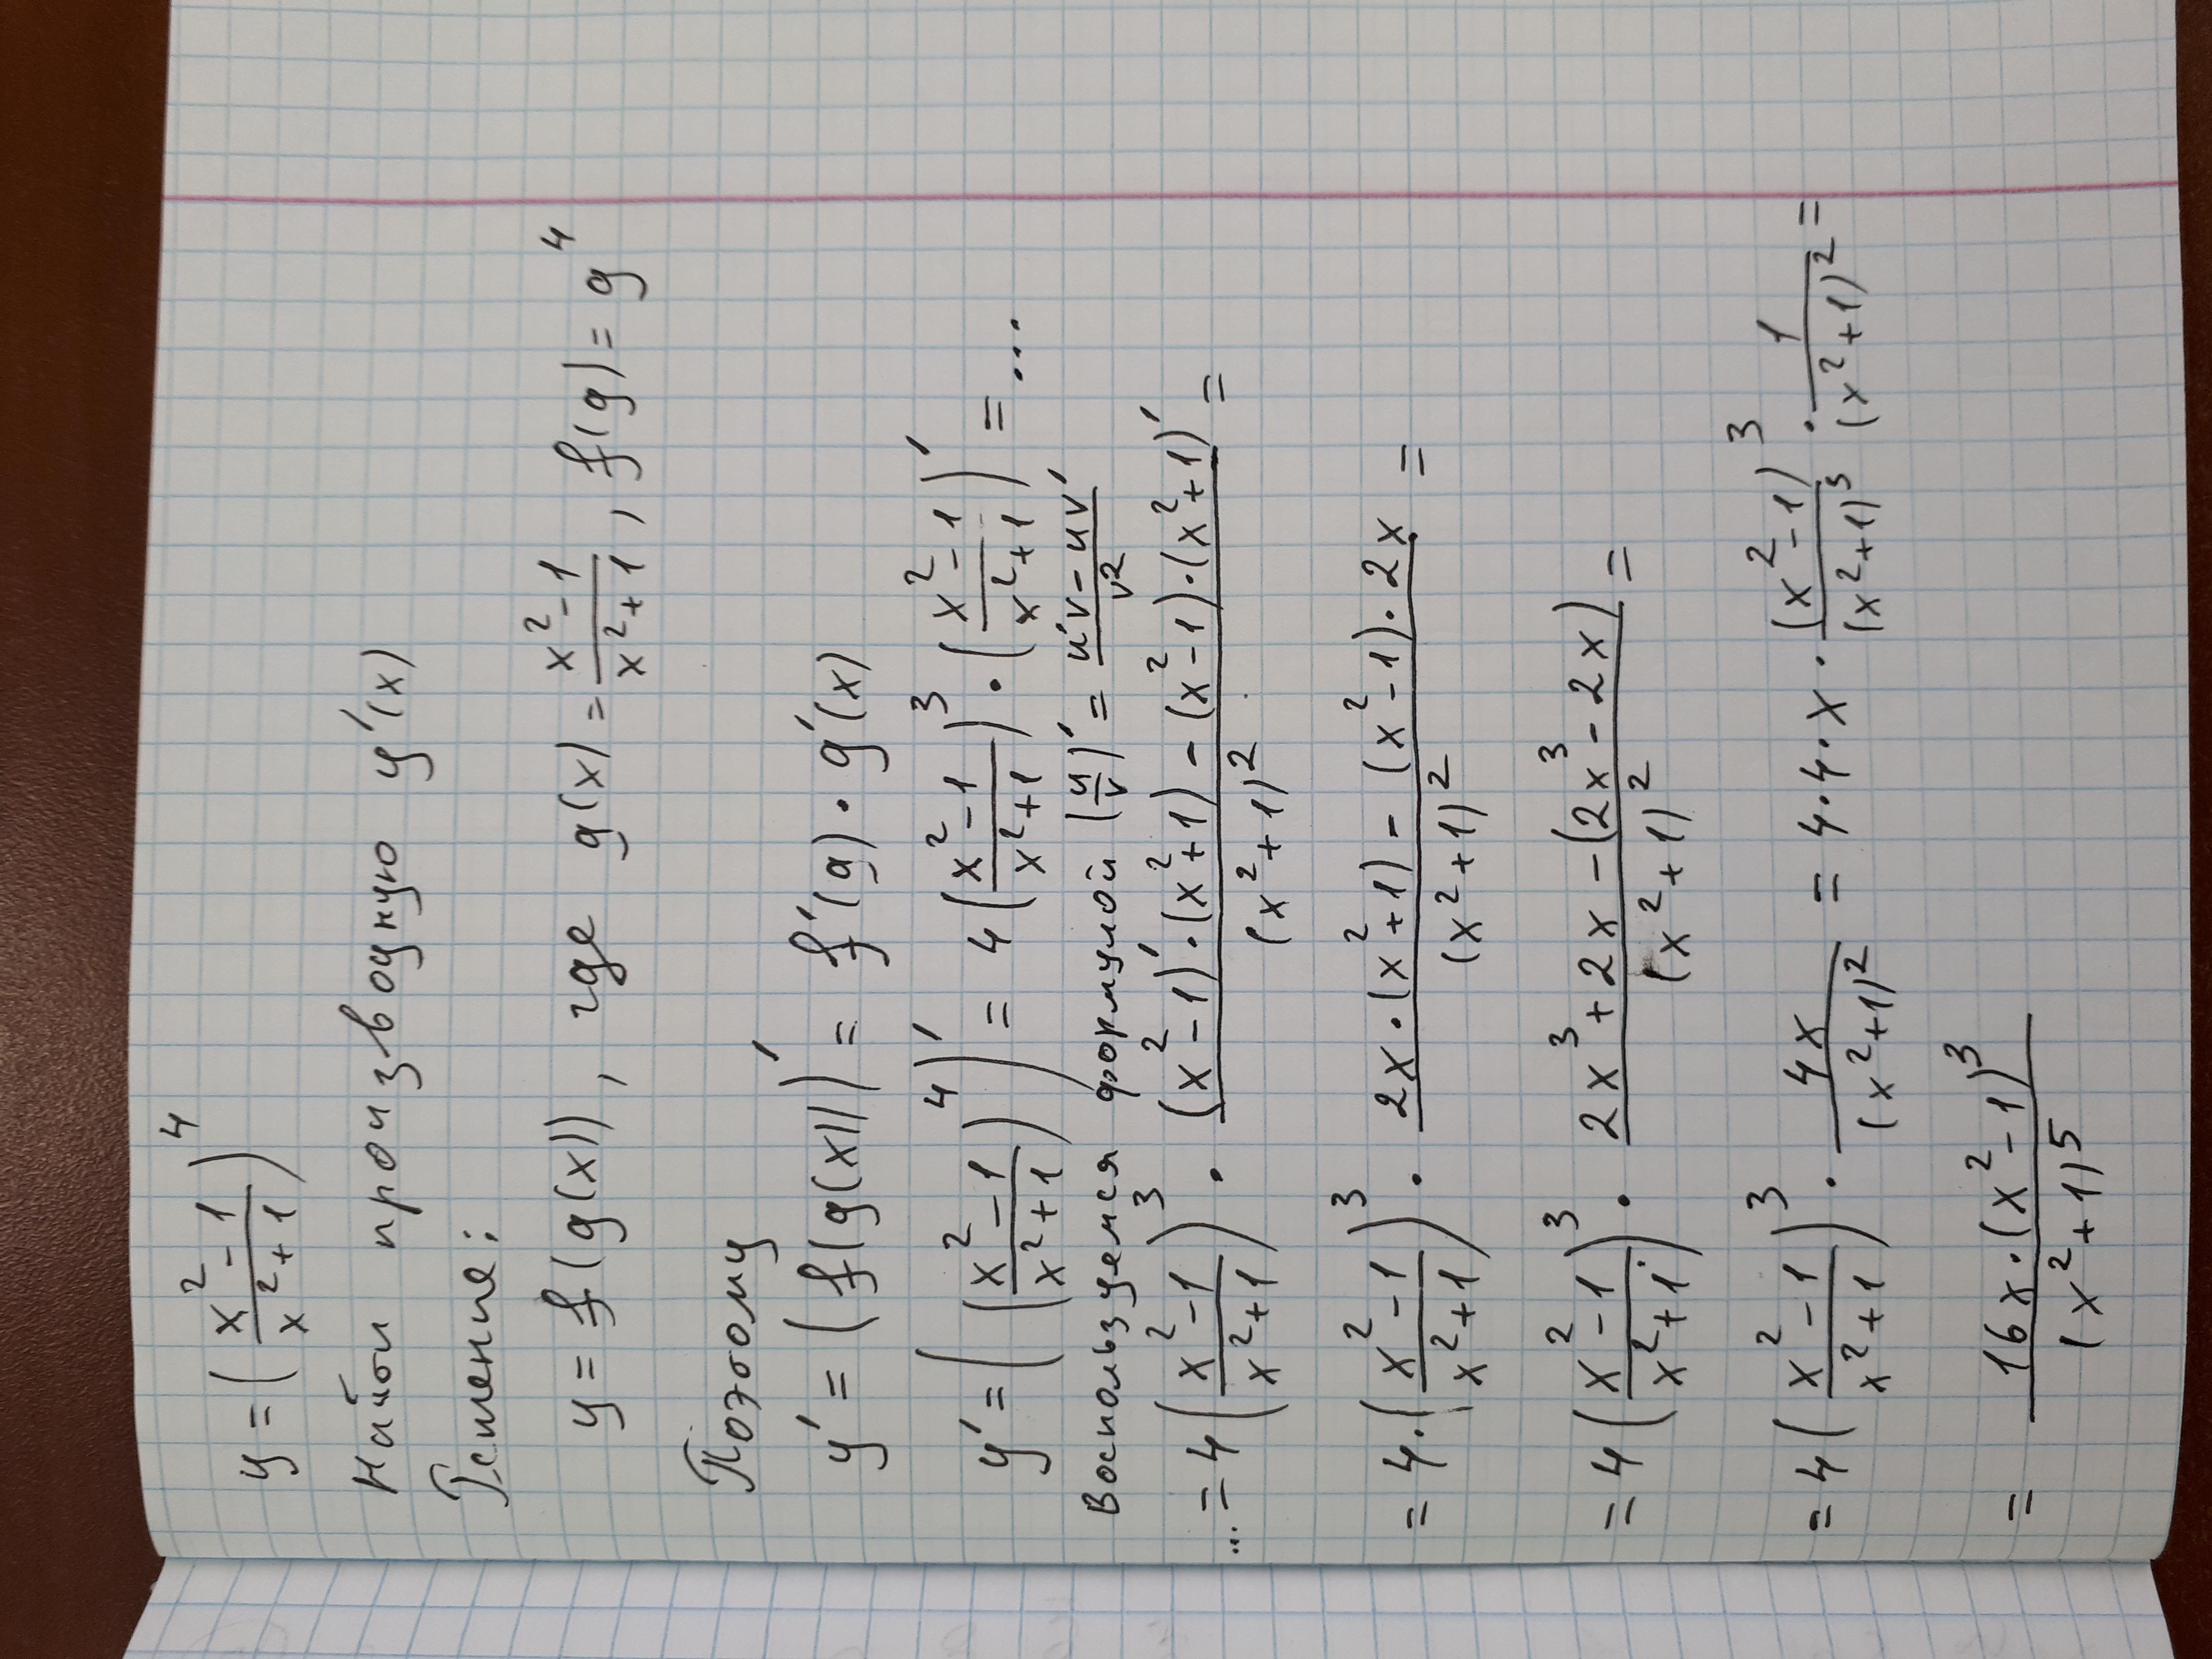 y = ((x² - 1)/(x² + 1))⁴
Найти производную y'(x)
Решение:
y = f(g(x)), где g(x) = (x² - 1)/(x² + 1), f(g) = g⁴
Поэтому
y' = (f(g(x)))' = f'(g) · g'(x)
y' = (((x² - 1)/(x² + 1))⁴)' = 4((x² - 1)/(x² + 1))³ · ((x² - 1)/(x² + 1))' = ...
Воспользуемся формулой (u/v)' = (u'v - uv')/v²
... = 4((x² - 1)/(x² + 1))³ · ((x² - 1)' · (x² + 1) - (x² - 1) · (x² + 1)')/(x² + 1)² =
= 4 · ((x² - 1)/(x² + 1))³ · (2x · (x² + 1) - (x² - 1) · 2x)/(x² + 1)² =
= 4((x² - 1)/(x² + 1))³ · (2x³ + 2x - (2x³ - 2x))/(x² + 1)² =
= 4((x² - 1)/(x² + 1))³ · 4x/(x² + 1)² = 4 · 4 · x · (x² - 1)³/(x² + 1)³ · 1/(x² + 1)² =
= 16x · (x² - 1)³/(x² + 1)⁵